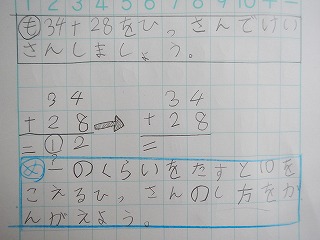 1 2 3 4 5 6 7 8 9 10
も 34+28をひっさんでけい
さんしましょう。
3 4 3 4
+ 2 8 → + 2 8
= ① 2 =
め 一のくらいをたすと10を
こえるひっさんのし方をか
んがえよう。